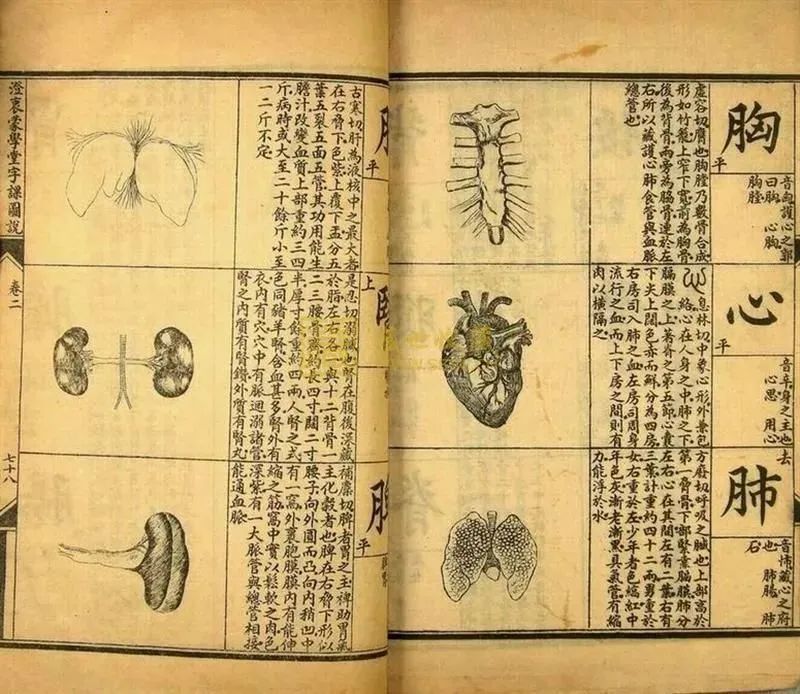 胸
平
音匈護心之郭
曰胸 心胸
胸膛
虛容切膺也胸膛乃數骨合成
形如竹籠上窄下寬前為胸骨
後為背骨兩旁為脇骨連於左
右所以藏護心肺食管與血脈
總管也
心
平
音辛身之主也
心思 用心
息林切中象心形外兼包
絡心在人身之中肺之下
膈膜之上者脊之第五節心
下尖上闊色赤而鮮分為四房
右房司入肺之血左房司周身
流行之血而上下房之間則有
肉以橫隔之
肺
去
音怖藏心之府
也 肺腸 肺
石
方廢切呼吸之臟也上部高於
第一脅骨下部緊靠膈膜肺分
左右心在其間左有二葉右有
三葉計重約四十二兩男重於
女右重於左少年者色縞紅中
年色灰漸老漸黑具氣管有縮
力能浮於水
平
古寒切肝為液核中之最大者
在右脅下色紫上覆下盂分五
葉五裂五面五管其功用能生
膽汁改變血質上部重約三四
斤病時或大至二十餘斤小至
一二斤不定
上
是忍切溺臟也腎在腹後深藏
於脂左右各一與十二背骨一
二三腰骨齊約長四寸闊二寸
半厚寸餘重約四兩人腎之式
色同豬羊腎含血甚多腎外有
衣內有穴穴中有脈迴溺諸管
腎之內質有腎鑽外質有腎丸
平
補麋切脾者胃之主裨助胃氣
主化穀者也脾在右脅下形似
腰子向外圓而凸向內稍凹中
有一窩外裹胞膜膜內有能伸
縮之筋窩中實以鬆軟之肉色
深紫有一大脈管與總管相接
能通血脈
澄衷蒙學堂字課圖說
卷二
七十八